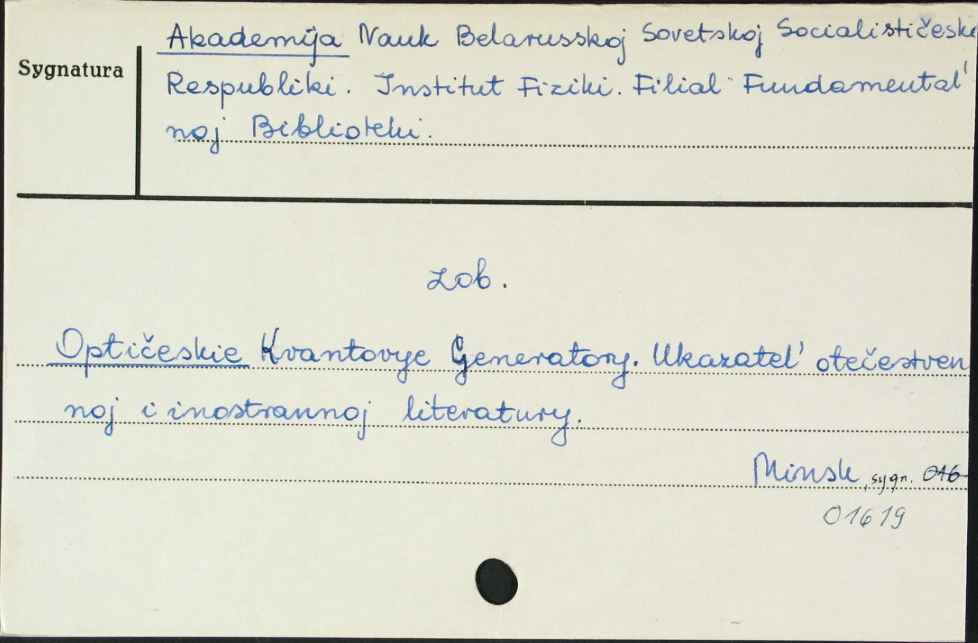 Akademija Nauk Belarusskoj Sovetskoj Socialističeski
Sygnatura
Respubliki. Institut Fiziki. Filial Fundamental'
noj Biblioteki.
zob.
Optičeskie Kvantovye Generatory. Ukazatel' otečestven
noj i inostrannoj literatury.
Minsk, sygn. 016
01619